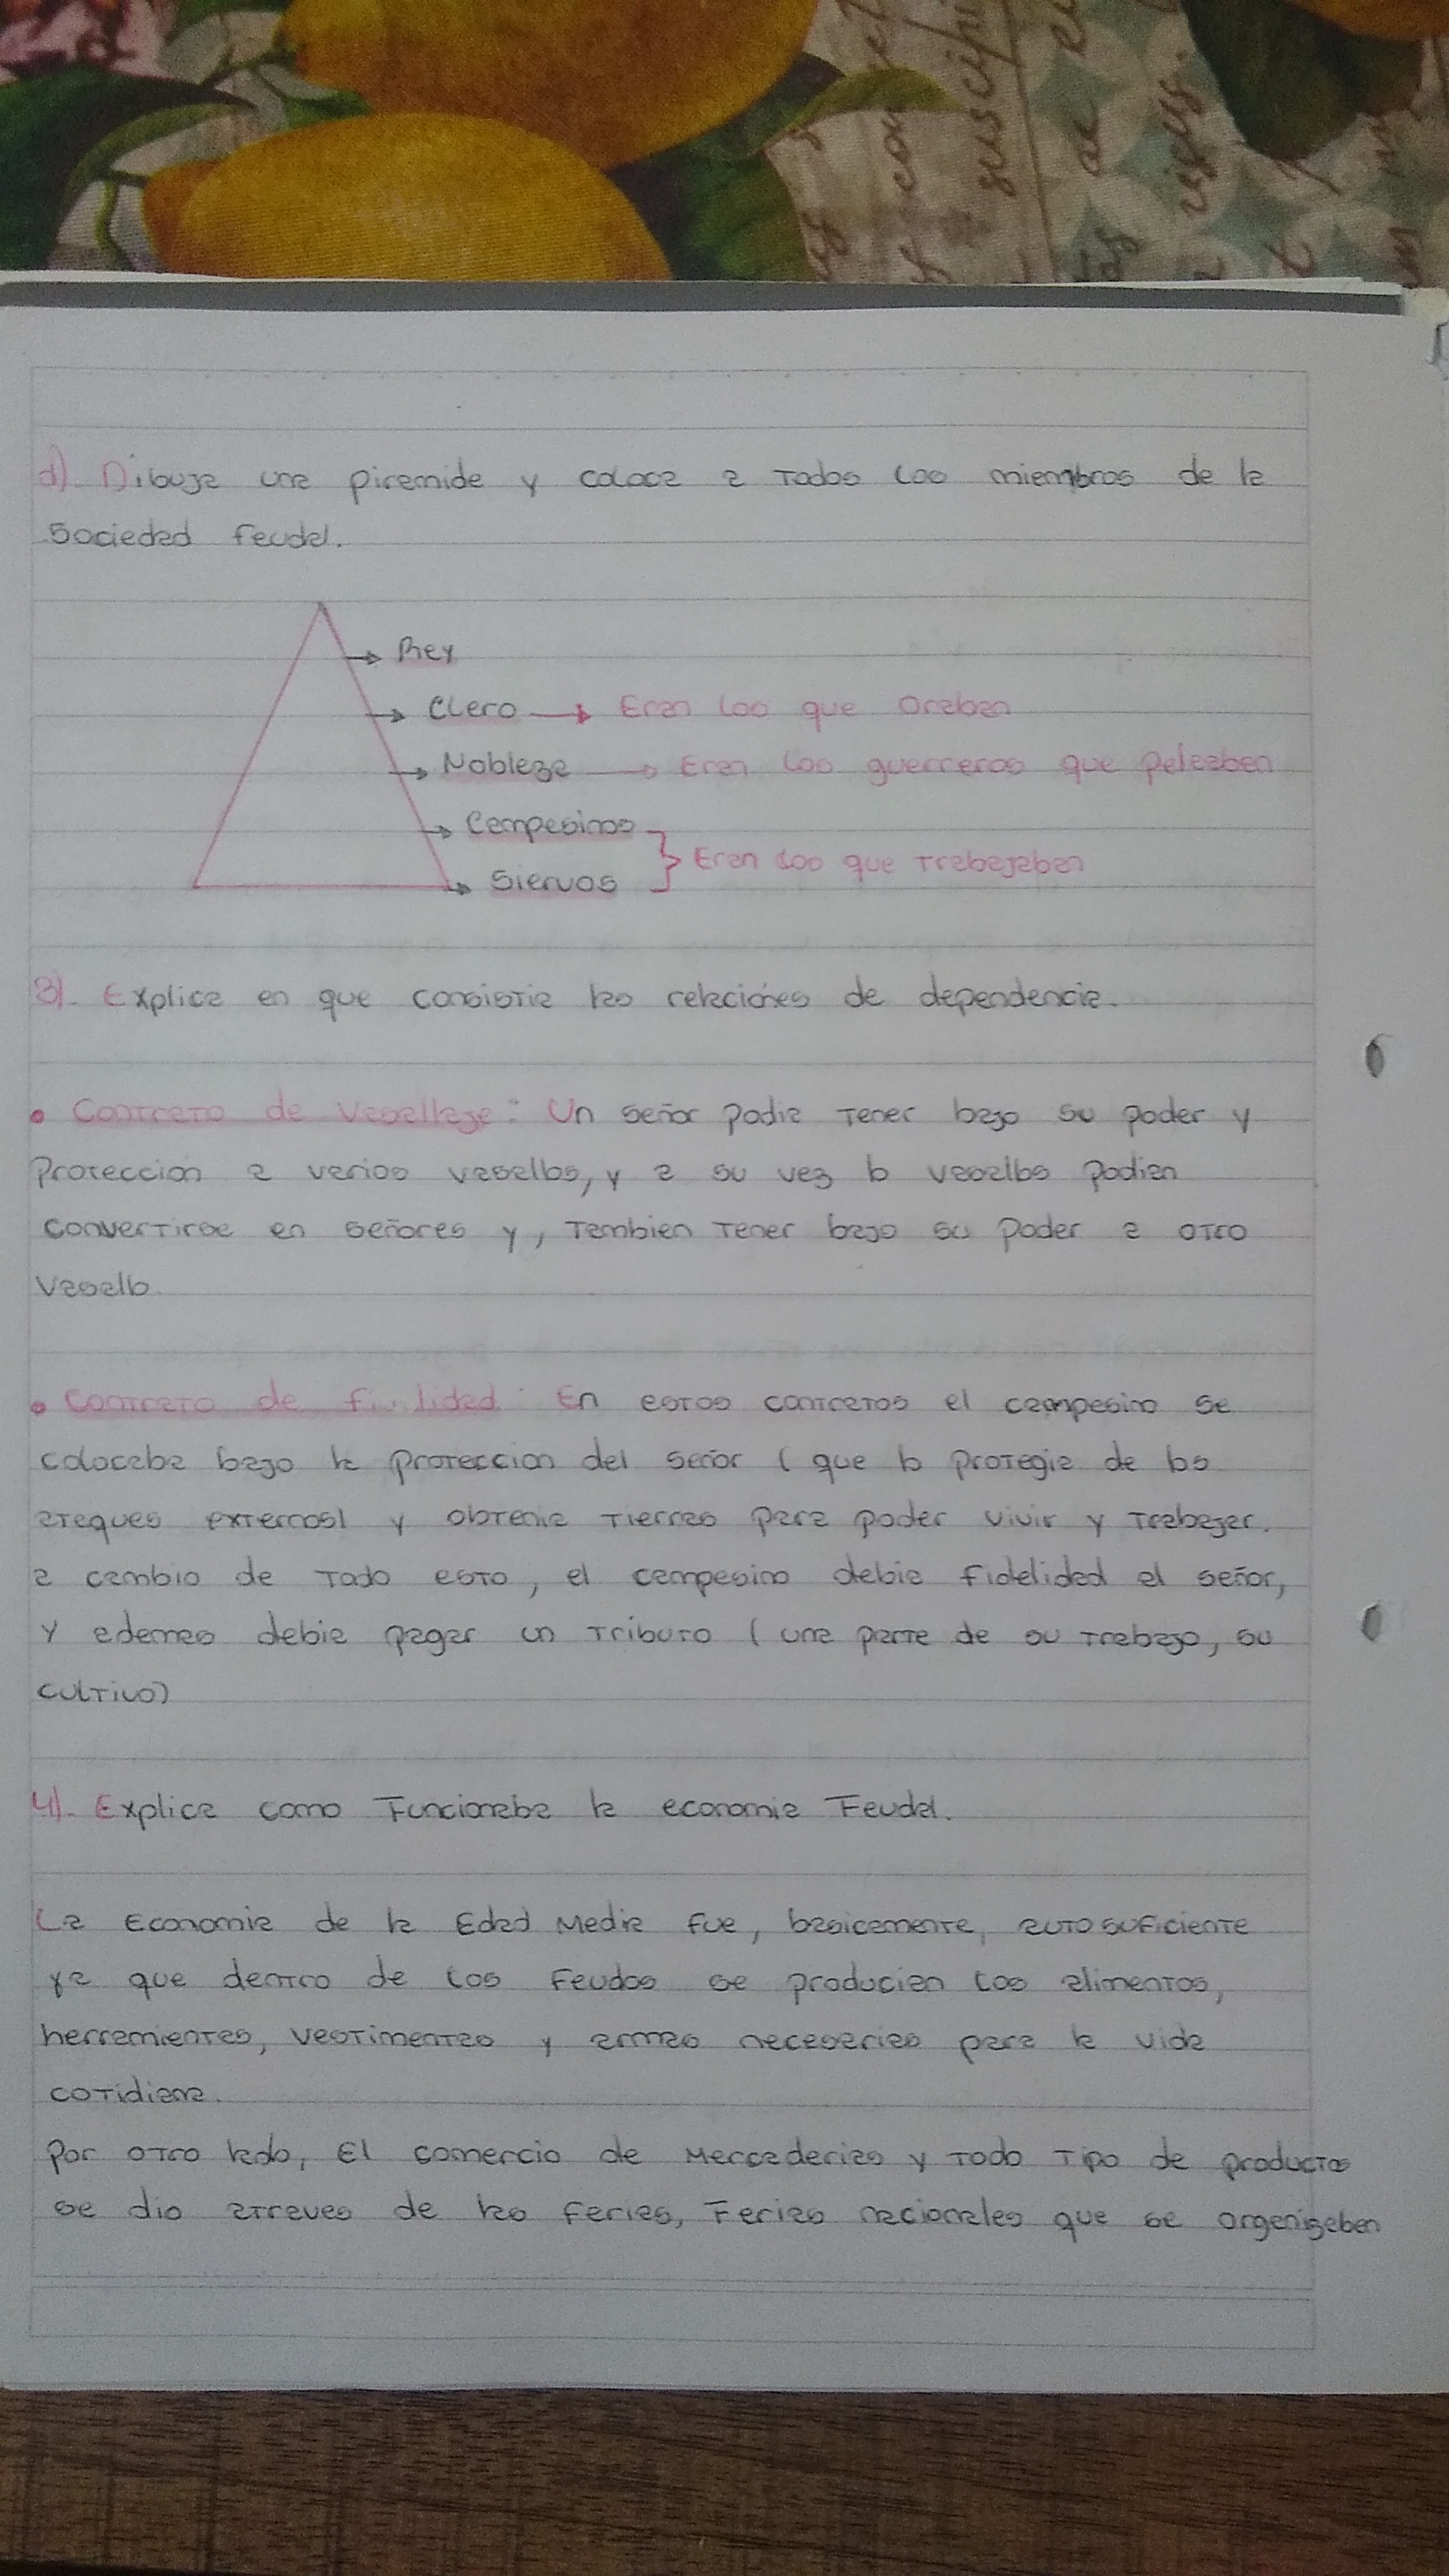 d). Dibuja una piramide y coloca a todos los miembros de la
Sociedad feudal.
Rey
Clero → Eran los que Oraban
Nobleza → Eran los guerreros que peleaban
Campesinos
Siervos } Eran los que trabajaban
3). Explica en que consistia las relaciónes de dependencia.
• Contrato de Vasallaje: Un señor podia tener bajo su poder y
Proteccion a varios vasallos, y a su vez lo vasallos podian
convertirse en señores y, tambien tener bajo su poder a otro
Vasallo.
• Contrato de : En estos contratos el campesino se
colocaba bajo la proteccion del señor ( que lo protegia de los
ataques externos) y obtenia tierras para poder vivir y trabajar.
a cambio de todo esto, el campesino debia fidelidad al señor,
y ademas debia pagar un tributo ( una parte de su trabajo, su
cultivo)
4). Explica como Funcionaba la economia Feudal.
La Economia de la Edad Media fue, basicamente, autosuficiente
ya que dentro de los Feudos se producian los alimentos,
herramientas, vestimentas y armas necesarias para la vida
cotidiana.
Por otro lado, El comercio de Mercaderias y todo tipo de productos
se dio atraves de las ferias, Ferias nacionales que se organizaban